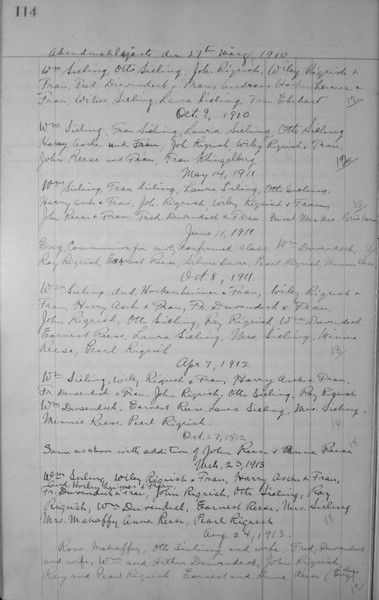 114
Abendmahlsgäste den 27th März, 1910
Wm Sieling, Otto Sieling, Joh. Rigrish, Wiley Rigrish &
Frau, Fred Duvendeck & Frau,
Frau, Sieling, Laura Sieling, Frau
Oct. 9, 1910
Wm Sieling, Frau Sieling, Laura Sieling, Otto Sieling
Harry Asche und Frau, Joh Rigrish Wiley Rigrish & Frau,
John Reese und Frau, Frau Klingelberg
May 14, 1911
Wm Sieling, Frau Sieling, Laura Sieling, Otto Sieling,
Harry Asch & Frau, Joh. Rigrish Wiley Rigrish & Frau,
John Reese & Frau. Fred. Duvendeck & Frau
June 18, 1911
Eng. Communion for newly confirmed class, Wm Duvendeck,
Ray Rigrish, Ernest Reese, Pearl Rigrish
Oct 8, 1911
Wm Sieling, & Frau, Wiley Rigrish &
Frau, Harry Asch & Frau, Fr. Duvendeck & Frau,
John Rigrish, Otto Sieling, Ray Rigrish Wm Duvendeck
Earnest Reese, Laura Sieling, Mrs. Sieling, Minnie
Reese, Pearl Rigrish
Apr 7, 1912
Wm Sieling, Wiley Rigrish & Frau, Harry Asch & Frau,
Fr. Duvendeck & Frau, John Rigrish, Otto Sieling, Ray Rigrish
Wm Duvendeck, Earnest Reese, Laura Sieling, Mrs. Sieling,
Minnie Reese, Pearl Rigrish.
Oct. 27, 1912
Same as above with addition of John Reese & Anna Reese
Mch. 23, 1913
Wm Sieling, Wiley Rigrish & Frau, Harry Asch & Frau,
Fr. Duvendeck & Frau, John Rigrish, Otto Sieling, Ray
Rigrish, Wm Duvendeck, Earnest Reese, Mrs. Sieling
Mrs. Mahaffy Anna Reese, Pearl Rigrish
Aug. 24, 1913.
Ross Mahaffy, Otto Sieling and wife, Fred, Duvendeck
and wife, Wm and Arthur Duvendeck, John Rigrish,
Ray and Pearl Rigrish Earnest and Anna Reese